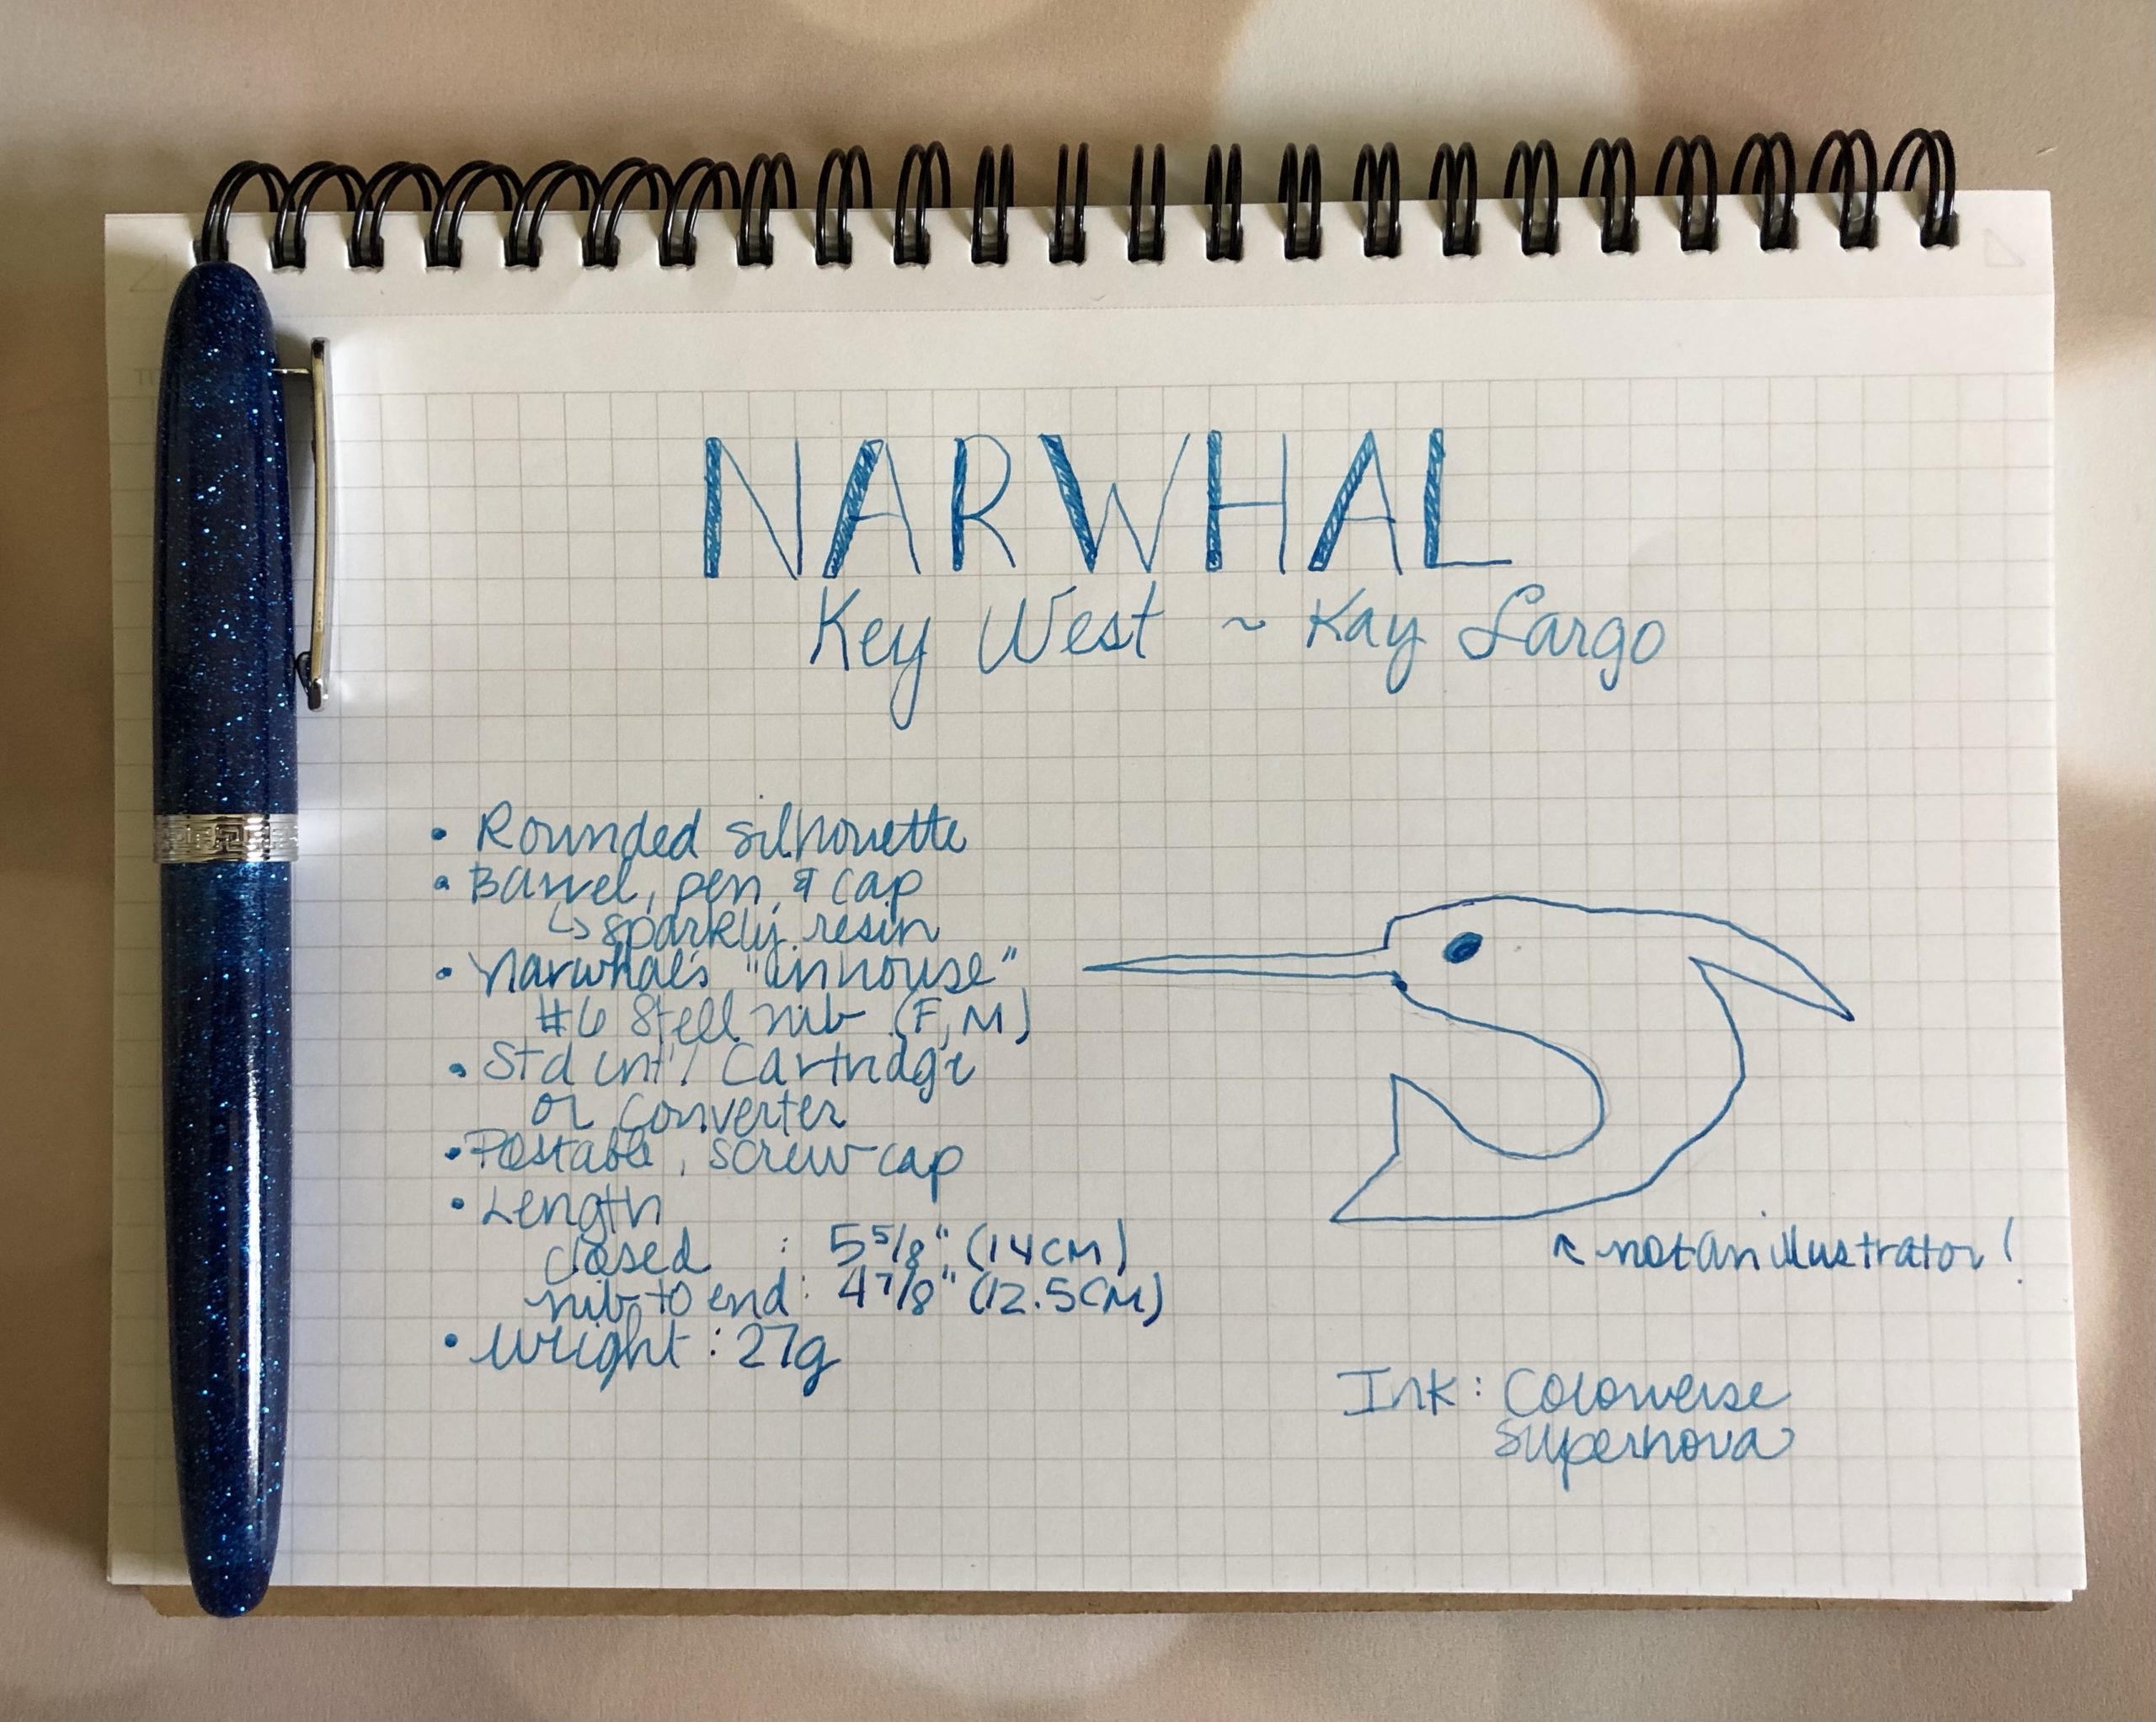 NARWHAL
Key West ~ Kay Largo
• Rounded silhouette
• Barrel, pen, & cap
↳ sparkly resin
• Narwhal's "inhouse"
#6 Stell nib (F, M)
• Std int'l Cartridge
or converter
• Postable, screw cap
• Length
closed : 5 5/8" (14CM)
nib to end : 4 7/8" (12.5CM)
• Weight : 27g
↖ not an illustrator!
Ink : Colorverse
Supernova